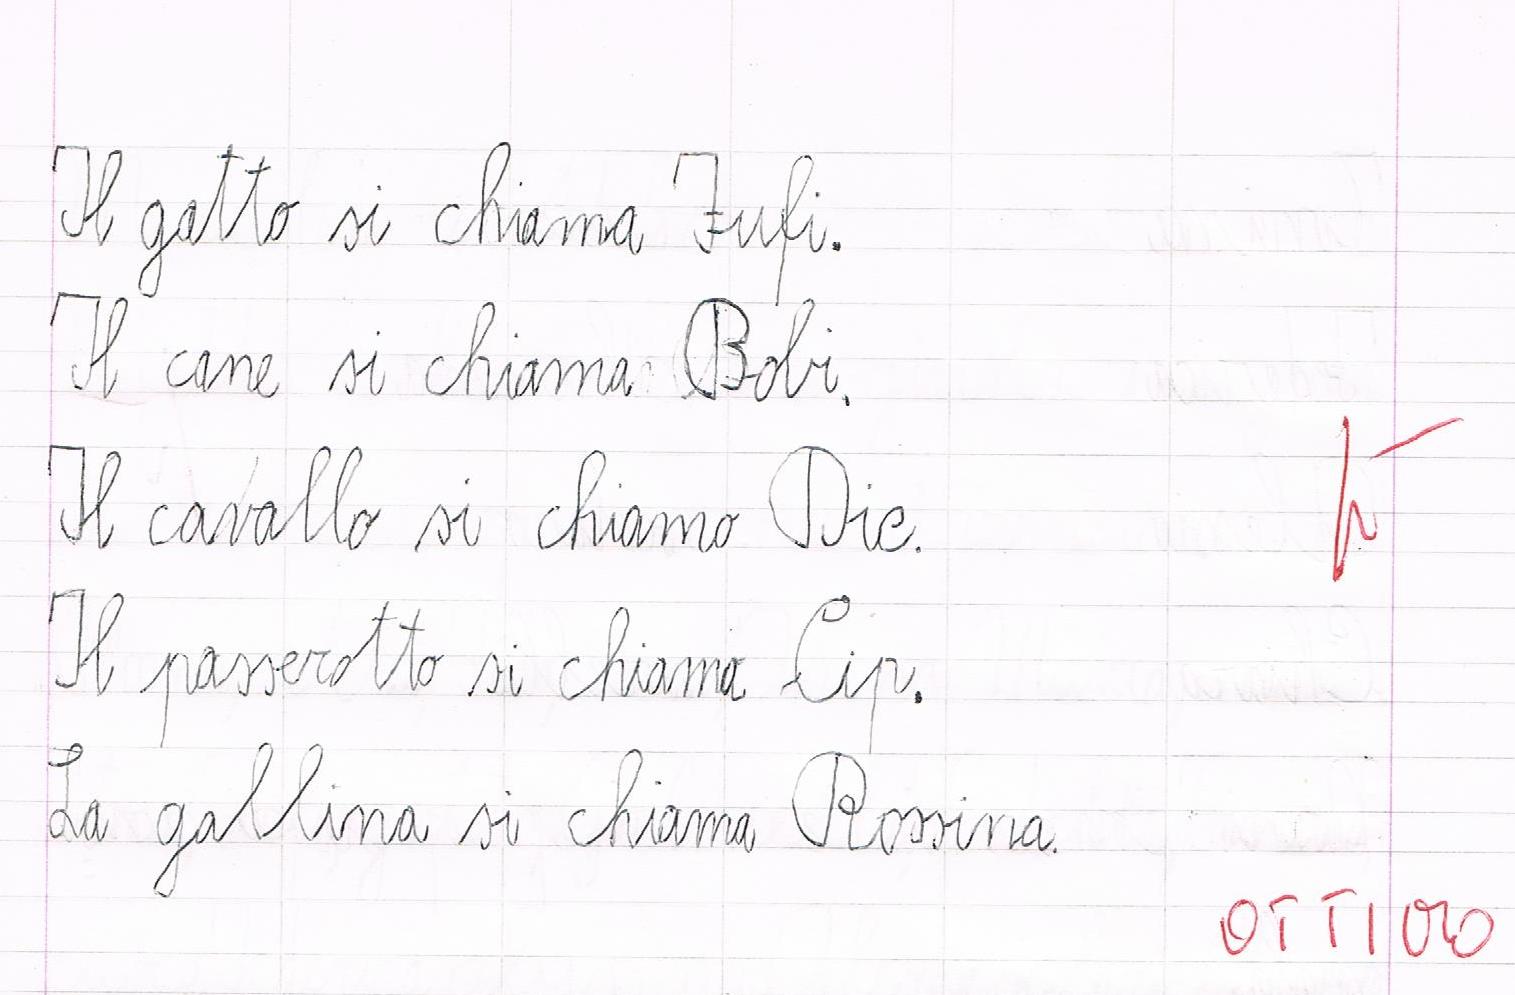 Il gatto si chiama Fufi.
Il cane si chiama Bobi.
Il cavallo si chiamo Die.
Il passerotto si chiama Cip.
La gallina si chiama Rossina.
OTTIMO